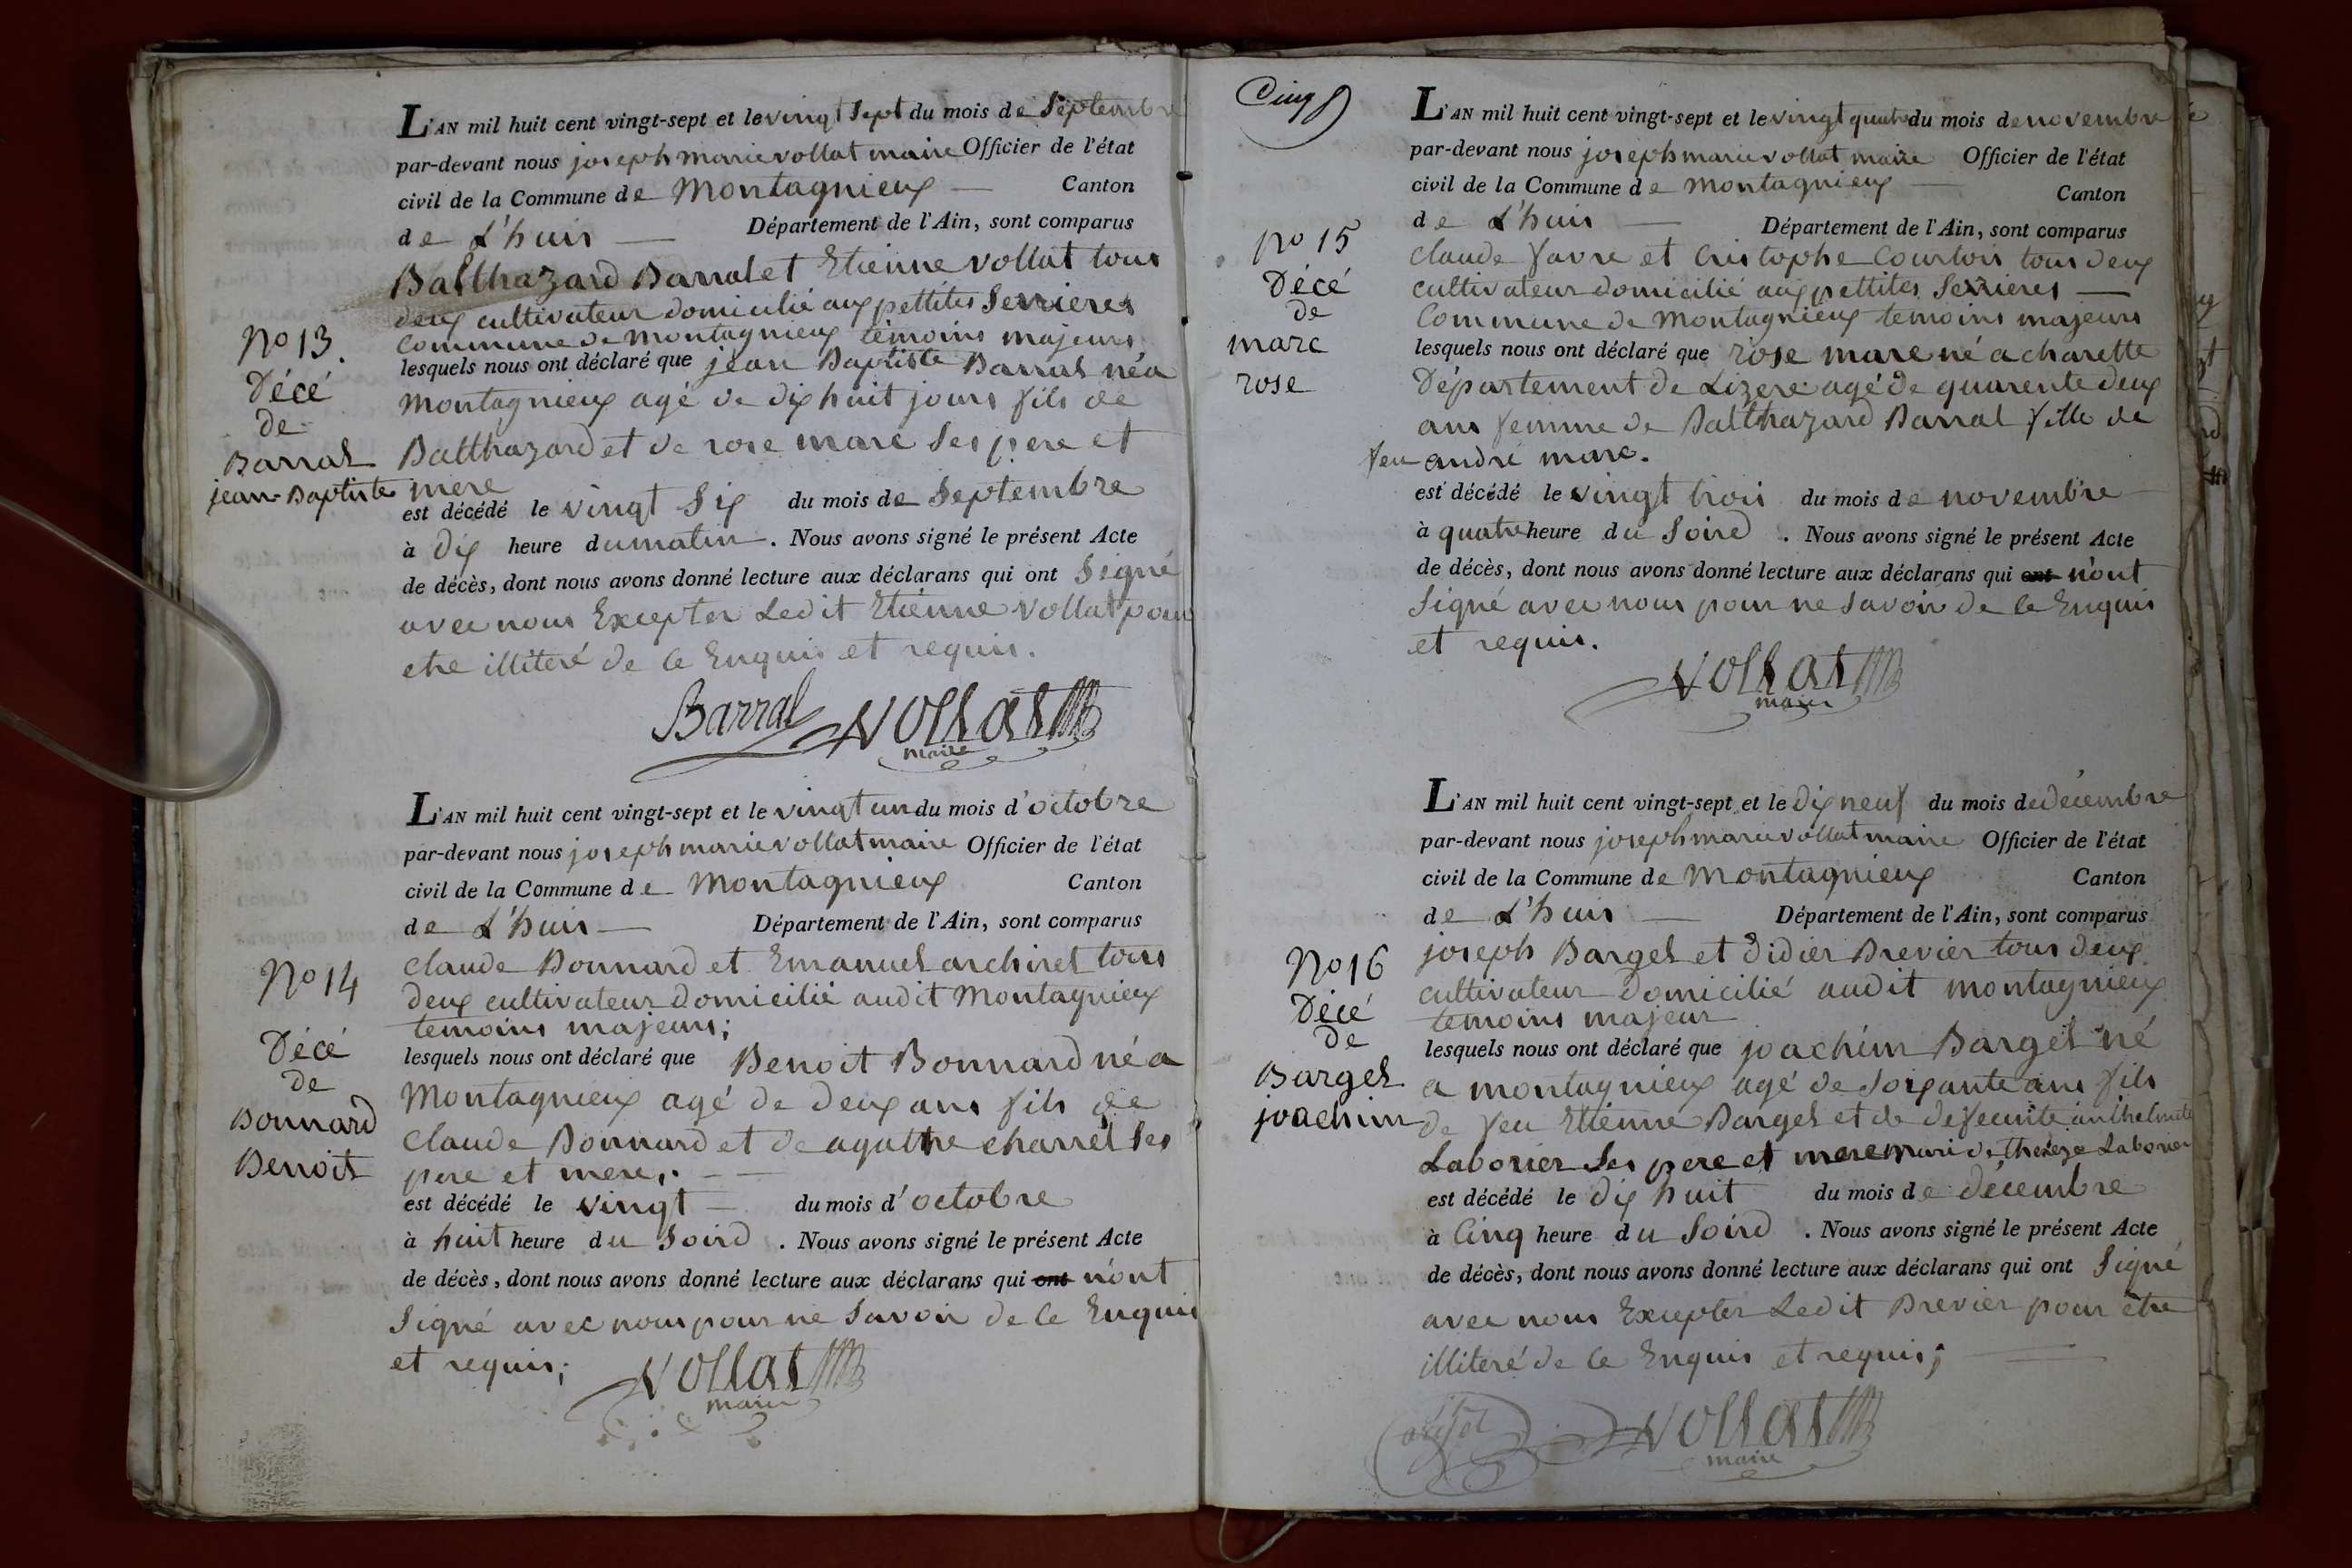 L'AN mil huit cent vingt-sept et le vingt sept du mois de Septembre
par-devant nous joseph marie vollat maire Officier de l'état
civil de la Commune de Montagnieux Canton
de L'huis Département de l'Ain, sont comparus
Balthazard Barral et Etienne vollat tous
deux cultivateur domicilié aux pettites Serrieres
Commune de Montagnieux témoins majeurs
No 13.
Décé
de
Barral
jean Baptiste
lesquels nous ont déclaré que jean Baptiste Barral né a
Montagnieux agé de dix huit jours fils de
Balthazard et de rose marc ses pere et
mere
est décédé le vingt Six du mois de Septembre
à dix heure du matin. Nous avons signé le présent Acte
de décès, dont nous avons donné lecture aux déclarans qui ont Signé
avec nous Excepter Ledit Etienne vollat pour
etre illiteré de ce Enquis et requis.
Barral vollat
maire
L'AN mil huit cent vingt-sept et le vingt un du mois d'octobre
par-devant nous joseph marie vollat maire Officier de l'état
civil de la Commune de Montagnieux Canton
de L'huis Département de l'Ain, sont comparus
Claude Bonnard et Emanuel archiret tous
deux cultivateur domicilié audit Montagnieux
temoins majeurs;
No 14
Décé
de
Bonnard
Benoit
lesquels nous ont déclaré que Benoit Bonnard né a
Montagnieux agé de deux ans fils de
Claude Bonnard et de agathe charrel ses
pere et mere.
est décédé le vingt du mois d'octobre
à huit heure du Soird. Nous avons signé le présent Acte
de décès, dont nous avons donné lecture aux déclarans qui ont n'ont
Signé avec nous pour ne Savoir de ce Enquis
et requis;
vollat
maire
Cinq
L'AN mil huit cent vingt-sept et le vingt quatre du mois de novembre
par-devant nous joseph marie vollat maire Officier de l'état
civil de la Commune de Montagnieux Canton
de L'huis Département de l'Ain, sont comparus
Claude favre et Cristophe Courtois tous deux
cultivateur domicilié aux pettites Serrieres
Commune de Montagnieux temoins majeurs
No 15
Décé
de
marc
rose
lesquels nous ont déclaré que rose marc né a charette
Département de Lizere agé de quarente deux
ans femme de Balthazard Barral fille de
feu andré marc.
est décédé le vingt trois du mois de novembre
à quatre heure du Soird. Nous avons signé le présent Acte
de décès, dont nous avons donné lecture aux déclarans qui ont n'ont
Signé avec nous pour ne Savoir de ce Enquis
et requis.
vollat
maire
L'AN mil huit cent vingt-sept et le dix neuf du mois de décembre
par-devant nous joseph marie vollat maire Officier de l'état
civil de la Commune de Montagnieux Canton
de L'huis Département de l'Ain, sont comparus
joseph Barget et Didier Brevier tous deux
cultivateur domicilié audit montagnieux
temoins majeur
No 16
Décé
de
Barget
joachim
lesquels nous ont déclaré que joachim Barget né
a montagnieux agé de soixante ans fils
de feu Etienne Barget et de defeunte
Laborier Ses pere et mere mari de thereze Laborier
est décédé le dix huit du mois de décembre
à Cinq heure du Soird. Nous avons signé le présent Acte
de décès, dont nous avons donné lecture aux déclarans qui ont Signé
avec nous Excepter Ledit Brevier pour etre
illiteré de ce Enquis et requis;
vollat
maire